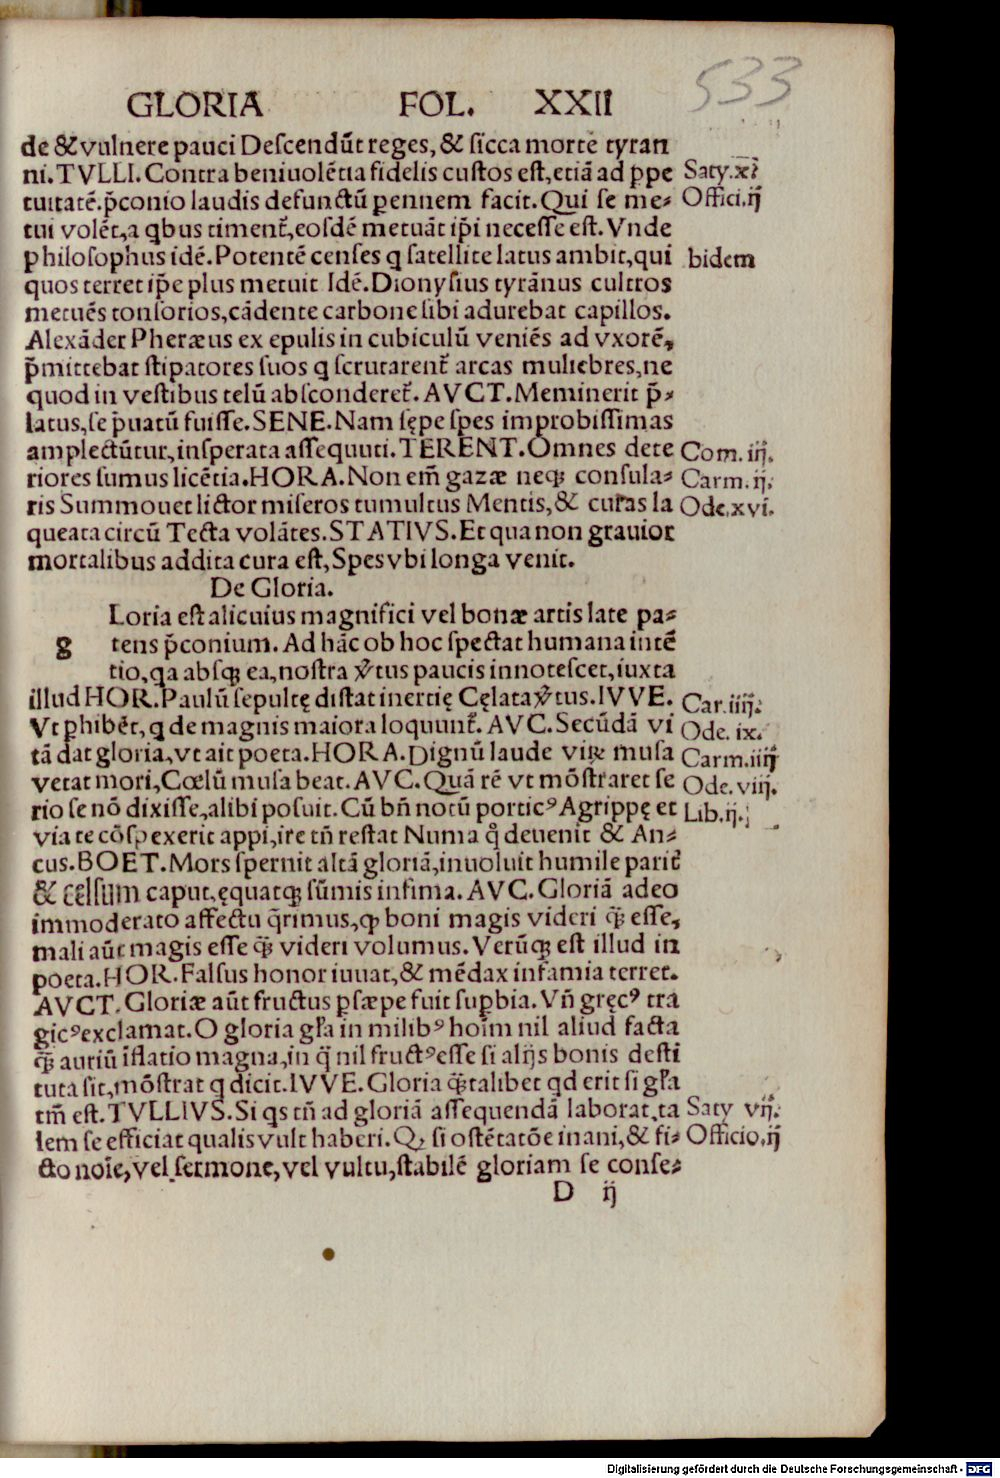 533
GLORIA FOL. XXII
de & vulnere pauci Descendūt reges, & sicca morte tyran
ni. TVLLI. Contra beniuolētia fidelis custos est, etiā ad ꝑpe Saty.x.
tuitatē. p̄conio laudis defunctū ꝑennem facit. Qui se me⸗ Offici.ij
tui volēt, a qbus timent᷑, eosdē metuāt ip̄i necesse est. Vnde
philosophus idē. Potentē censes q satellite latus ambit, qui bidem
quos terret ip̄e plus metuit Idē. Dionysius tyrānus cultros
metuēs tonsorios, cādente carbone sibi adurebat capillos.
Alexāder Pheræus ex epulis in cubiculū veniēs ad vxorē,
p̄mittebat stipatores suos q scrutarent᷑ arcas muliebres, ne
quod in vestibus telū absconderet᷑. AVCT. Meminerit p̄⸗
latus, se p̍uatū fuisse. SENE. Nam sępe spes improbissimas
amplectūtur, insperata assequuti. TERENT. Omnes dete Com.iij.
riores sumus licētia. HORA. Non em̄ gazæ neqꝫ consula⸗ Carm.ij.
ris Summouet lictor miseros tumultus Mentis, & curas la Ode.xvi.
queata circū Tecta volātes. STATIVS. Et qua non grauior
mortalibus addita cura est, Spes vbi longa venit.
De Gloria.
Loria est alicuius magnifici vel bonæ artis late pa⸗
g tens p̄conium. Ad hāc ob hoc spectat humana intē
tio, qa absqꝫ ea, nostra v̓tus paucis innotescet, iuxta
illud HOR. Paulū sepultę distat inertię Cęlata v̓tus. IVVE. Car.iiij.
Vt ꝑhibēt, q de magnis maiora loquunt᷑. AVC. Secūdā vi Ode. ix.
tā dat gloria, vt ait poeta. HORA. Dignū laude viꝝ musa Carm.iiij
vetat mori, Cœlū musa beat. AVC. Quā rē vt mōstraret se Ode. viij.
rio se nō dixisse, alibi posuit. Cū bn̄ notū porticꝰ Agrippę et Lib.ij.
via te cōspexerit appi, ire tn̄ restat Numa q̊ deuenit & An⸗
cus. BOET. Mors spernit altā gloriā, inuoluit humile parit᷑
& celsum caput, ęquatqꝫ sūmis infima. AVC. Gloriā adeo
immoderato affectu q̄rimus, ꝙ boni magis videri q̄ꝫ esse,
mali aūt magis esse q̄ꝫ videri volumus. Verūqꝫ est illud in
poeta. HOR. Falsus honor iuuat, & mēdax infamia terret.
AVCT. Gloriæ aūt fructus ꝑsæpe fuit suꝑbia. Vn̄ gręcꝰ tra
gicꝰ exclamat. O gloria gl̓a in milibꝰ hoīm nil aliud facta
q̄ꝫ auriū īflatio magna, in q̄ nil fructꝰ esse si alijs bonis desti
tuta sit, mōstrat q dicit. IVVE. Gloria q̄ꝫtalibet qd erit si gl̓a
tm̄ est. TVLLIVS. Si qs tn̄ ad gloriā assequendā laborat, ta Saty vij.
lem se efficiat qualis vult haberi. Qꝫ si ostētatōe inani, & fi⸗ Officio.ij
cto noīe, vel sermone, vel vultu, stabilē gloriam se conse⸗
D ij
Digitalisierung gefördert durch die Deutsche Forschungsgemeinschaft - DFG